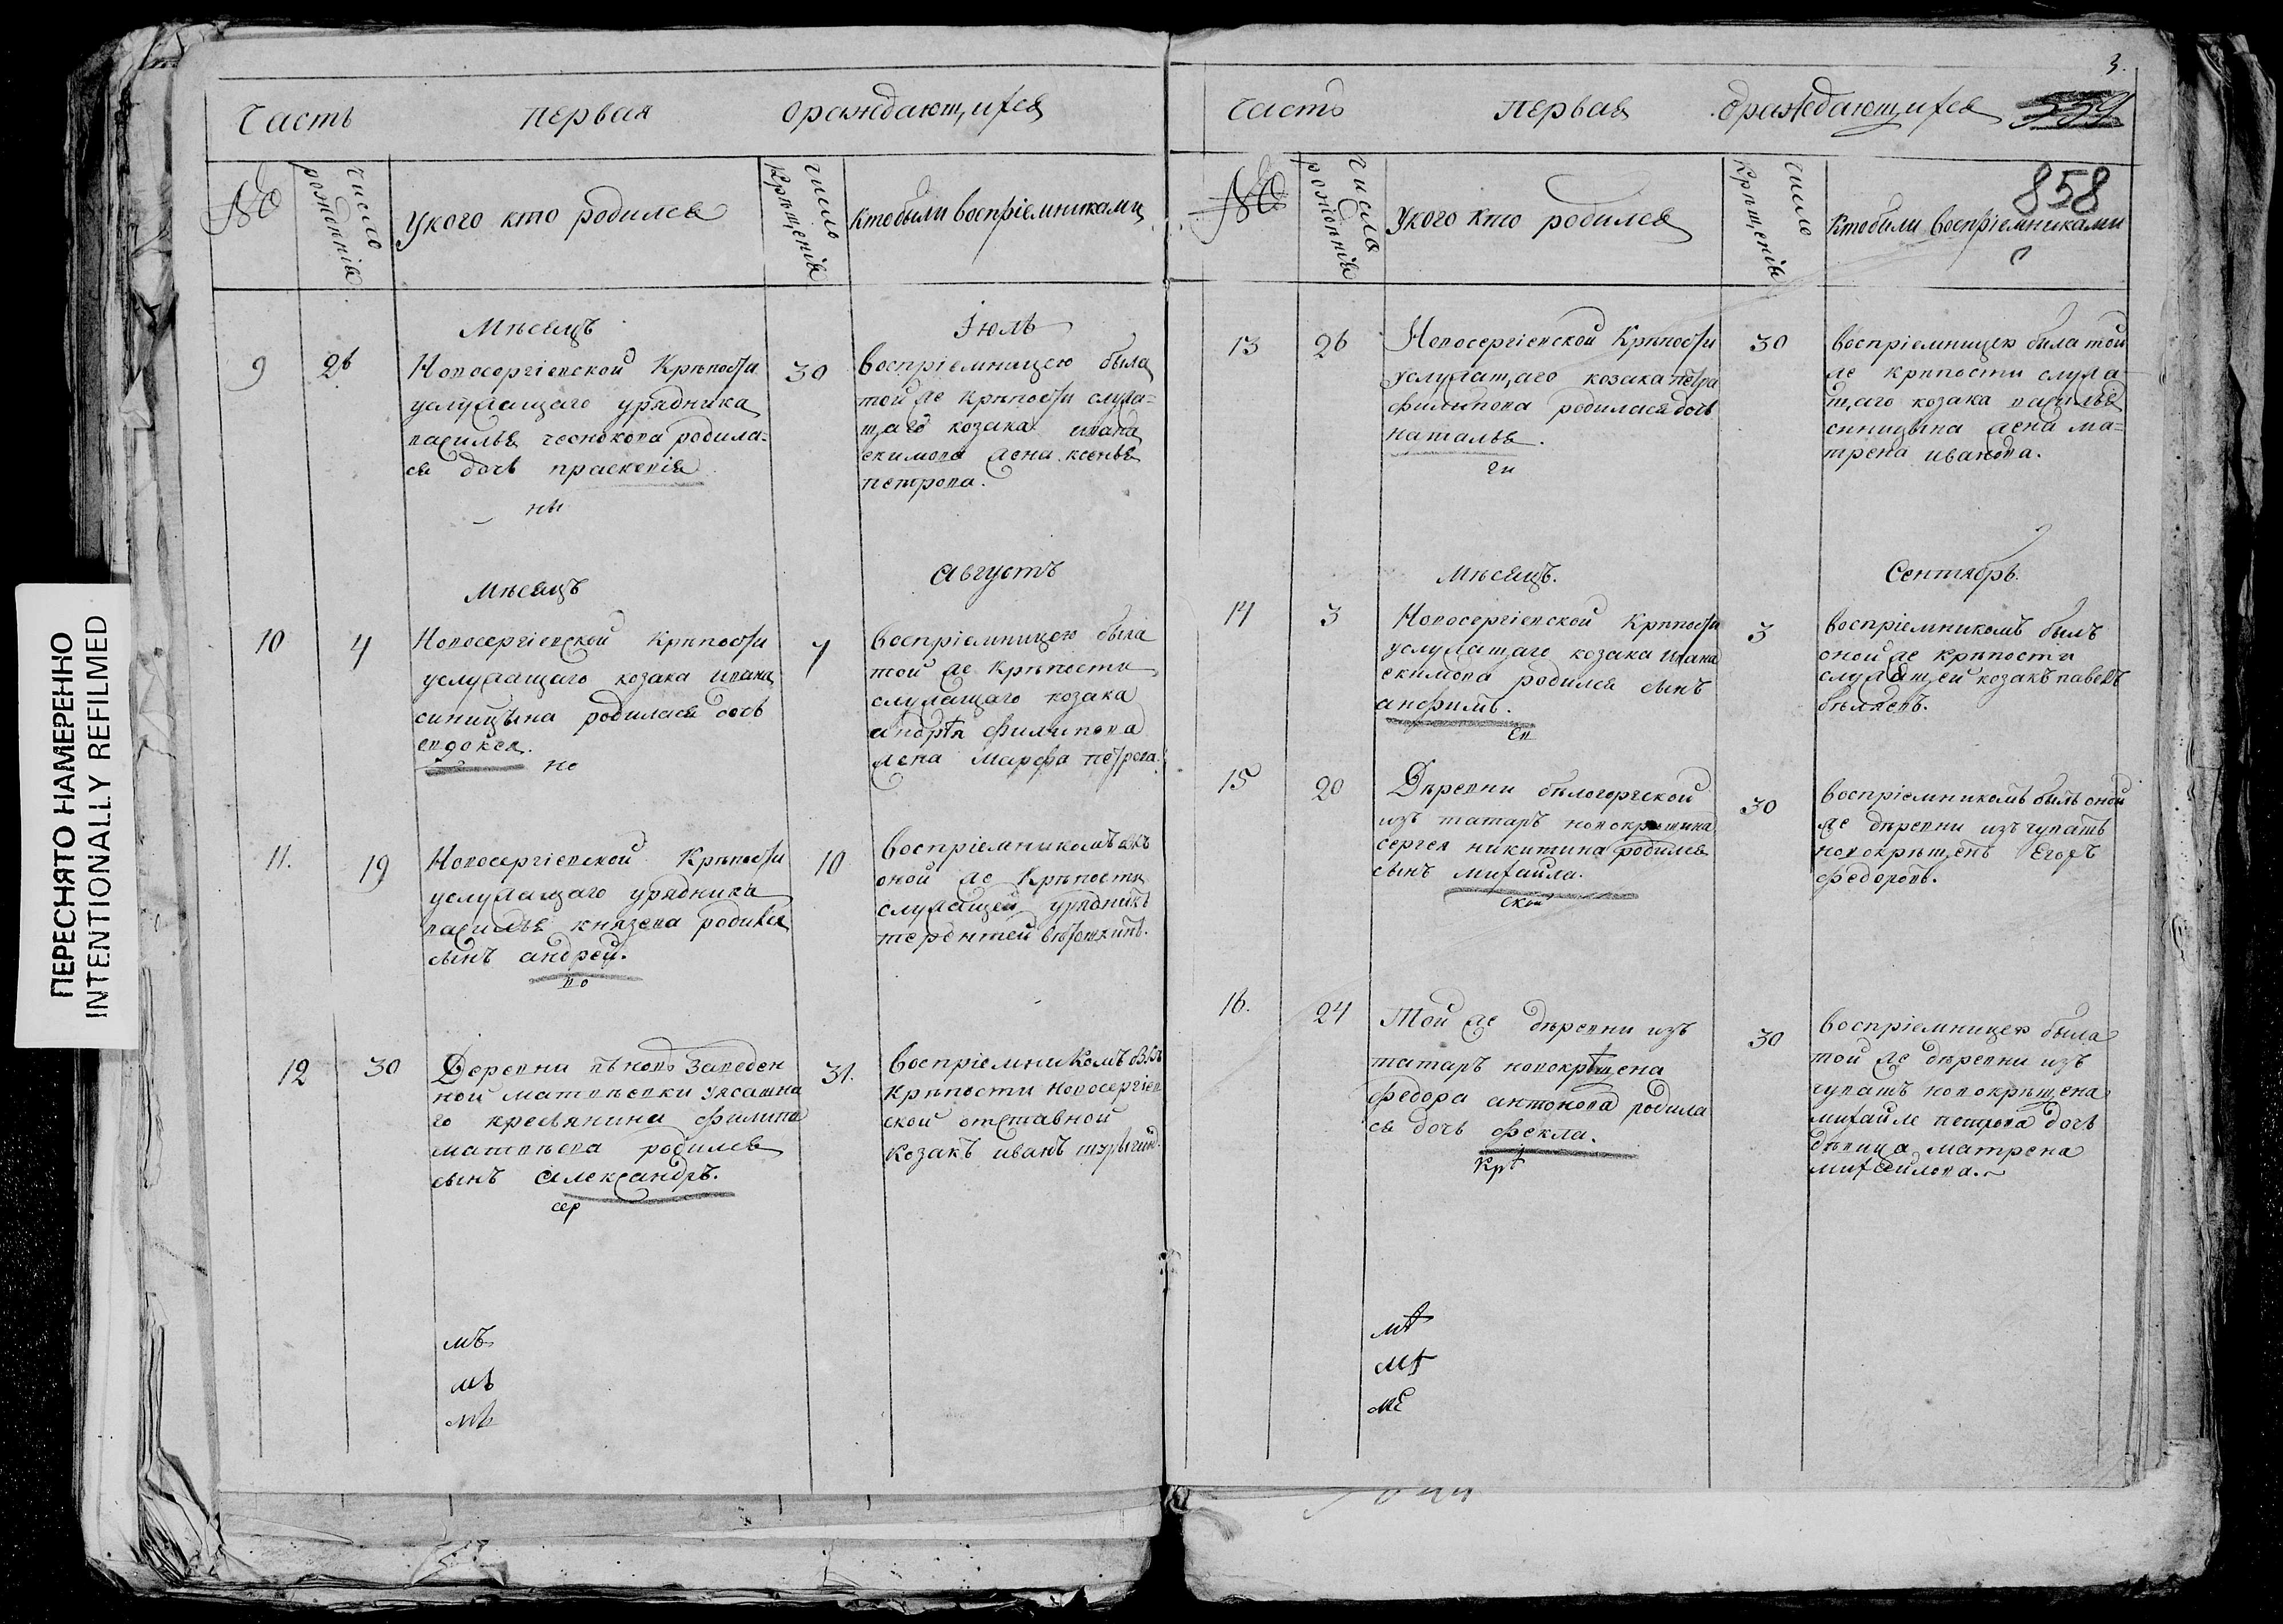 ПЕРЕСНЯТО НАМЕРЕННО
INTENTIONALLY REFILMED
Часть первая ораждающихся
№
число рождения
укого кто родился
число крѣщения
кто были воспріемниками
Мѣсяцъ Іюль
9 26
Новосергіевской Крѣпости
услужащаго урядника
василья чеснокова родила-
ся дочь праскевія
ны
30
воспріемницею была
той же крѣпости служа-
щаго козака ивана
екимова жена ксенья
петрова.
Мѣсяцъ Августъ
10 4
Новосергіевской Крѣпости
услужащаго козака ивана
синицына родилася дочь
евдокея.
но
7
воспріемницею была
той же Крѣпости
служащаго козака
андрѣя филипова
жена Марфа петрова.
11. 19
Новосергіевской Крѣпости
услужащаго урядника
василья князева родился
сынъ андрей.
во
10
воспріемникомъ былъ
оной же Крѣпости
служащей урядникъ
терентей
12 30
Деревни вновь Заведен
ной матвѣевки уясашна
го кресьянина филипа
матвѣева родился
сынъ александръ.
сер
31.
воспріемникомъ былъ
Крѣпости новосергіев
ской отставной
козакъ иванъ
мъ
мъ
мъ
3.
Часть первая ораждающихся
858
№
число рождения
укого кто родился
число крѣщения
кто были воспріемниками
13 26
Новосергіевской Крѣпости
услужащаго козака петра
филипова родилася дочь
наталья.
ги
30
воспріемницею была той
же крѣпости служа-
щаго козака василья
синицына жена ма-
трена иванова.
Мѣсяцъ. Сентябрь.
14 3
Новосергіевской Крѣпости
услужащаго козака ивана
екимова родился сынъ
анфимъ.
ев
3
воспріемникомъ былъ
оной же крѣпости
служащей козакъ павелъ
бѣляевъ.
15 20
Дѣревни бѣлогорской
изъ татаръ новокрещина
сергея никитина родился
сынъ михайла.
ской
30
воспріемникомъ былъ оной
же дѣревни изъ чувашъ
новокрѣщенъ Егоръ
федоровъ.
16. 24
Той же дѣревни изъ
татаръ новокрѣщена
федора антонова родила
ся дочь фекла.
крѣ
30
воспріемницею была
той же дѣревни изъ
чувашъ новокрѣщена
михайле петрова дочь
дѣвица матрена
михайлова.
мѣ
мѣ
мѣ